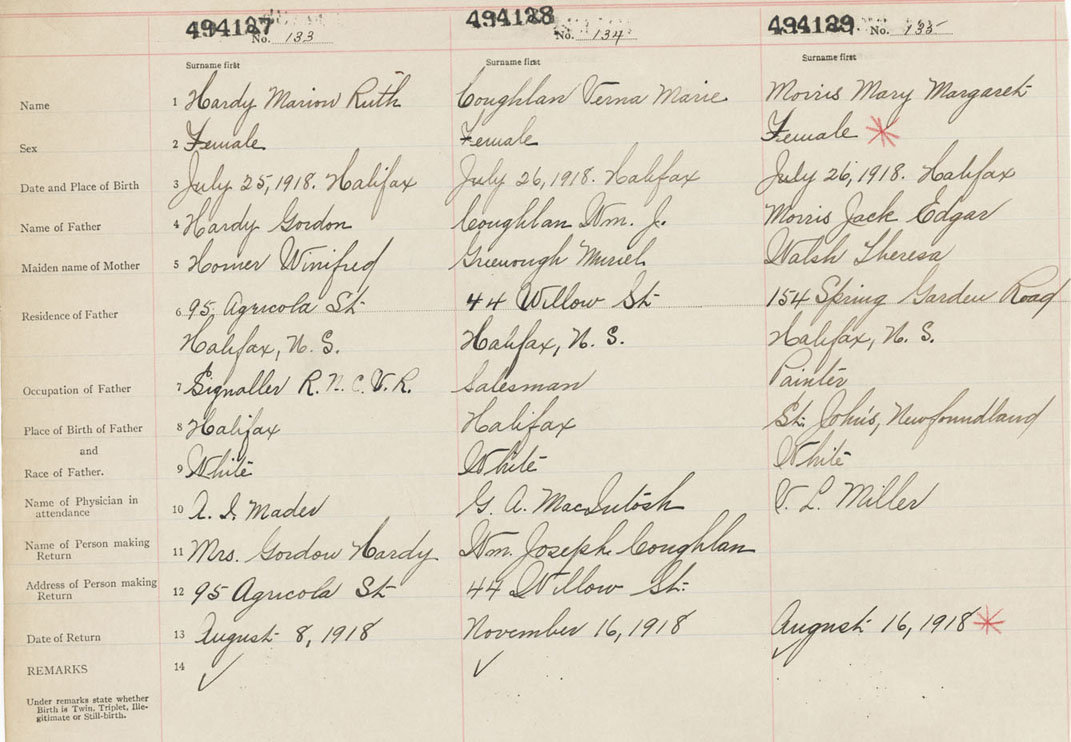 494127 494128 494129
No. 133 No. 134 No. 135
Surname first Surname first Surname first
Name 1 Hardy Marion Ruth Coughlan Verna Marie Morris Mary Margaret
Sex 2 Female Female Female
Date and Place of Birth 3 July 25, 1918. Halifax July 26, 1918. Halifax July 26, 1918. Halifax
Name of Father 4 Hardy Gordon Coughlan Wm. J. Morris Jack Edgar
Maiden name of Mother 5 Homer Winifred Greenough Muriel Walsh Theresa
Residence of Father 6 95 Agricola St 44 Willow St. 154 Spring Garden Road
Halifax, N. S. Halifax, N. S. Halifax, N. S.
Occupation of Father 7 Signaller R. N. C. V. R. Salesman Painter
Place of Birth of Father 8 Halifax Halifax St. John's, Newfoundland
and
Race of Father. 9 White White White
Name of Physician in
attendance 10 A. I. Mader G. A. MacIntosh V. L. Miller
Name of Person making
Return 11 Mrs. Gordon Hardy Wm. Joseph Coughlan
Address of Person making
Return 12 95 Agricola St 44 Willow St.
Date of Return 13 August 8, 1918 November 16, 1918 August 16, 1918
REMARKS 14
Under remarks state whether
Birth is Twin, Triplet, Ille-
gitimate or Still-birth.